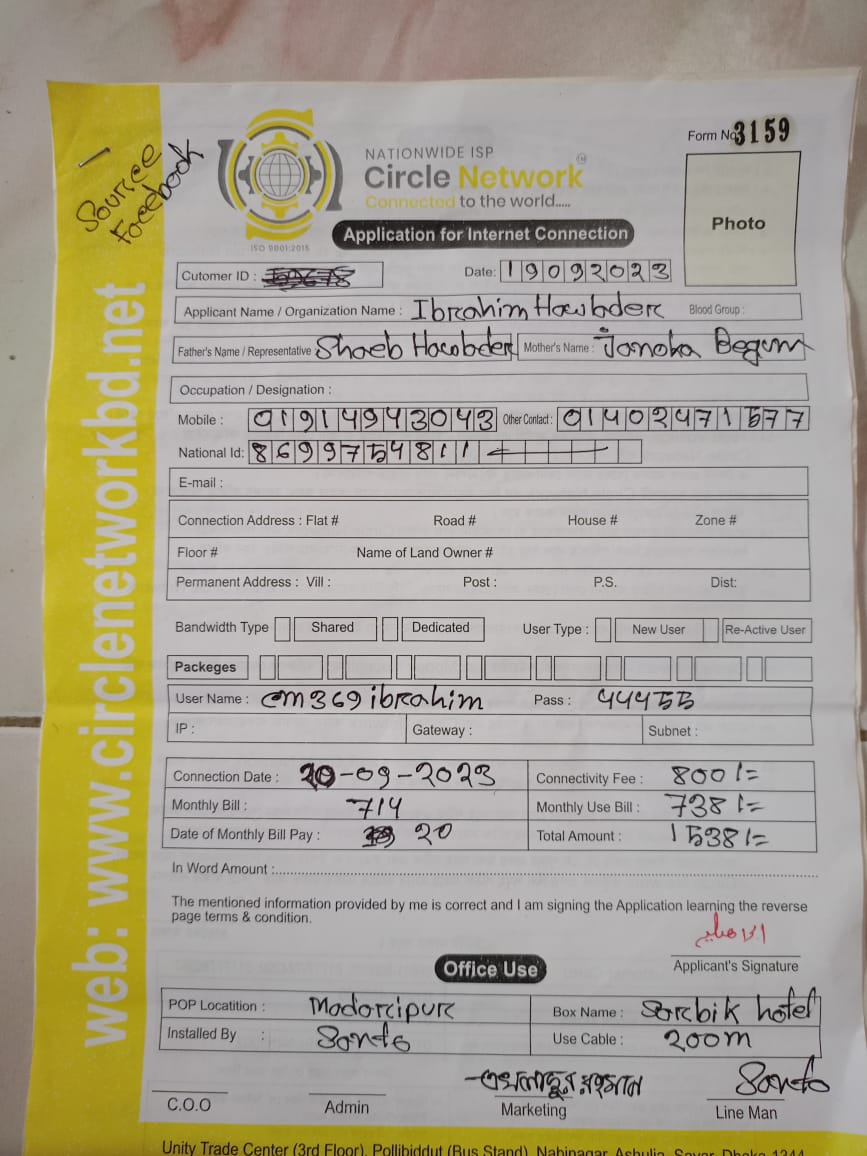 Source
Facebook
Form No 3159
NATIONWIDE ISP
Circle Network
Connected to the world.....
ISO 9001:2015
Application for Internet Connection
Photo
Cutomer ID :
Date: 19092023
Applicant Name / Organization Name : Ibrahim Howbder Blood Group :
Father's Name / Representative Shoeb Howbder Mother's Name : Jonoka Begum
Occupation / Designation :
Mobile : 01914943043 Other Contact : 01402471577
National Id: 8699754811
E-mail :
Connection Address : Flat # Road # House # Zone #
Floor # Name of Land Owner #
Permanent Address : Vill : Post : P.S. Dist:
Bandwidth Type Shared Dedicated User Type : New User Re-Active User
Packeges
User Name : cm369ibrahim Pass : 44455
IP : Gateway : Subnet :
Connection Date : 20-09-2023 Connectivity Fee : 800/=
Monthly Bill : 714 Monthly Use Bill : 738/=
Date of Monthly Bill Pay : 20 Total Amount : 1538/=
In Word Amount :
The mentioned information provided by me is correct and I am signing the Application learning the reverse
page terms & condition.
Applicant's Signature
Office Use
POP Locatition : Modorcipur Box Name : Sorbik hotel
Installed By : Sonto Use Cable : 200m
এখলাছুর রহমান Sonto
C.O.O Admin Marketing Line Man
web: www.circlenetworkbd.net
Unity Trade Center (3rd Floor), Pollibiddut (Bus Stand), Nabinagar, Ashulia, Savar, Dhaka-1344